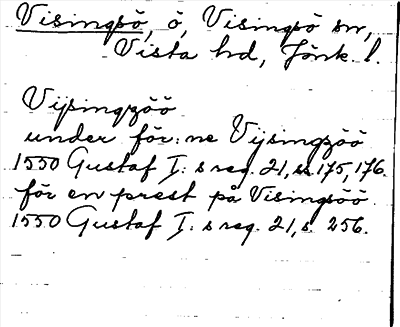 Visingsö, ö, Visingsö sn,
Vista hd, Jönk. l.
Vijsingzöö
under för:ne Vijsingzöö
1550 Gustaf I:s reg. 21, s. 175, 176.
för en prest på Visingsöö
1550 Gustaf I:s reg. 21, s. 256.